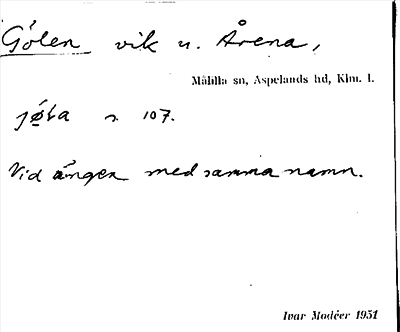 Gölen vik u. Årena,
Målilla sn, Aspelands hd, Klm. l.
s. 107.
Vid ängen med samma namn.
Ivar Modéer 1951